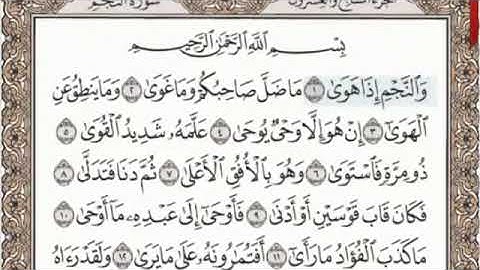 سورة النجم الجزء السابع والعشرون
بِسْمِ ٱللَّهِ ٱلرَّحْمَٰنِ ٱلرَّحِيمِ
وَٱلنَّجْمِ إِذَا هَوَىٰ ١ مَا ضَلَّ صَاحِبُكُمْ وَمَا غَوَىٰ ٢ وَمَا يَنطِقُ عَنِ
ٱلْهَوَىٰٓ ٣ إِنْ هُوَ إِلَّا وَحْىٌ يُوحَىٰ ٤ عَلَّمَهُۥ شَدِيدُ ٱلْقُوَىٰ ٥
ذُو مِرَّةٍ فَٱسْتَوَىٰ ٦ وَهُوَ بِٱلْأُفُقِ ٱلْأَعْلَىٰ ٧ ثُمَّ دَنَا فَتَدَلَّىٰ ٨
فَكَانَ قَابَ قَوْسَيْنِ أَوْ أَدْنَىٰ ٩ فَأَوْحَىٰٓ إِلَىٰ عَبْدِهِۦ مَآ أَوْحَىٰ ١٠
مَا كَذَبَ ٱلْفُؤَادُ مَا رَأَىٰٓ ١١ أَفَتُمَٰرُونَهُۥ عَلَىٰ مَا يَرَىٰ ١٢ وَلَقَدْ رَءَاهُ